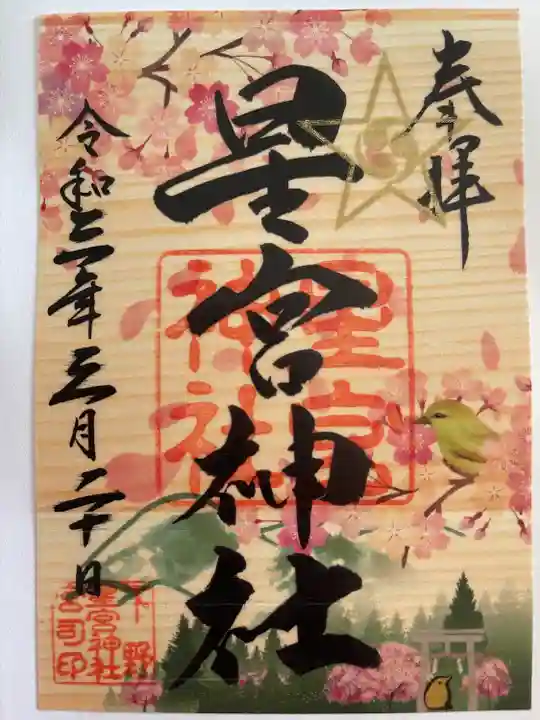 奉拝
星宮神社
星宮
神社
令和三年三月二十日
下野
星宮神社
宮司印